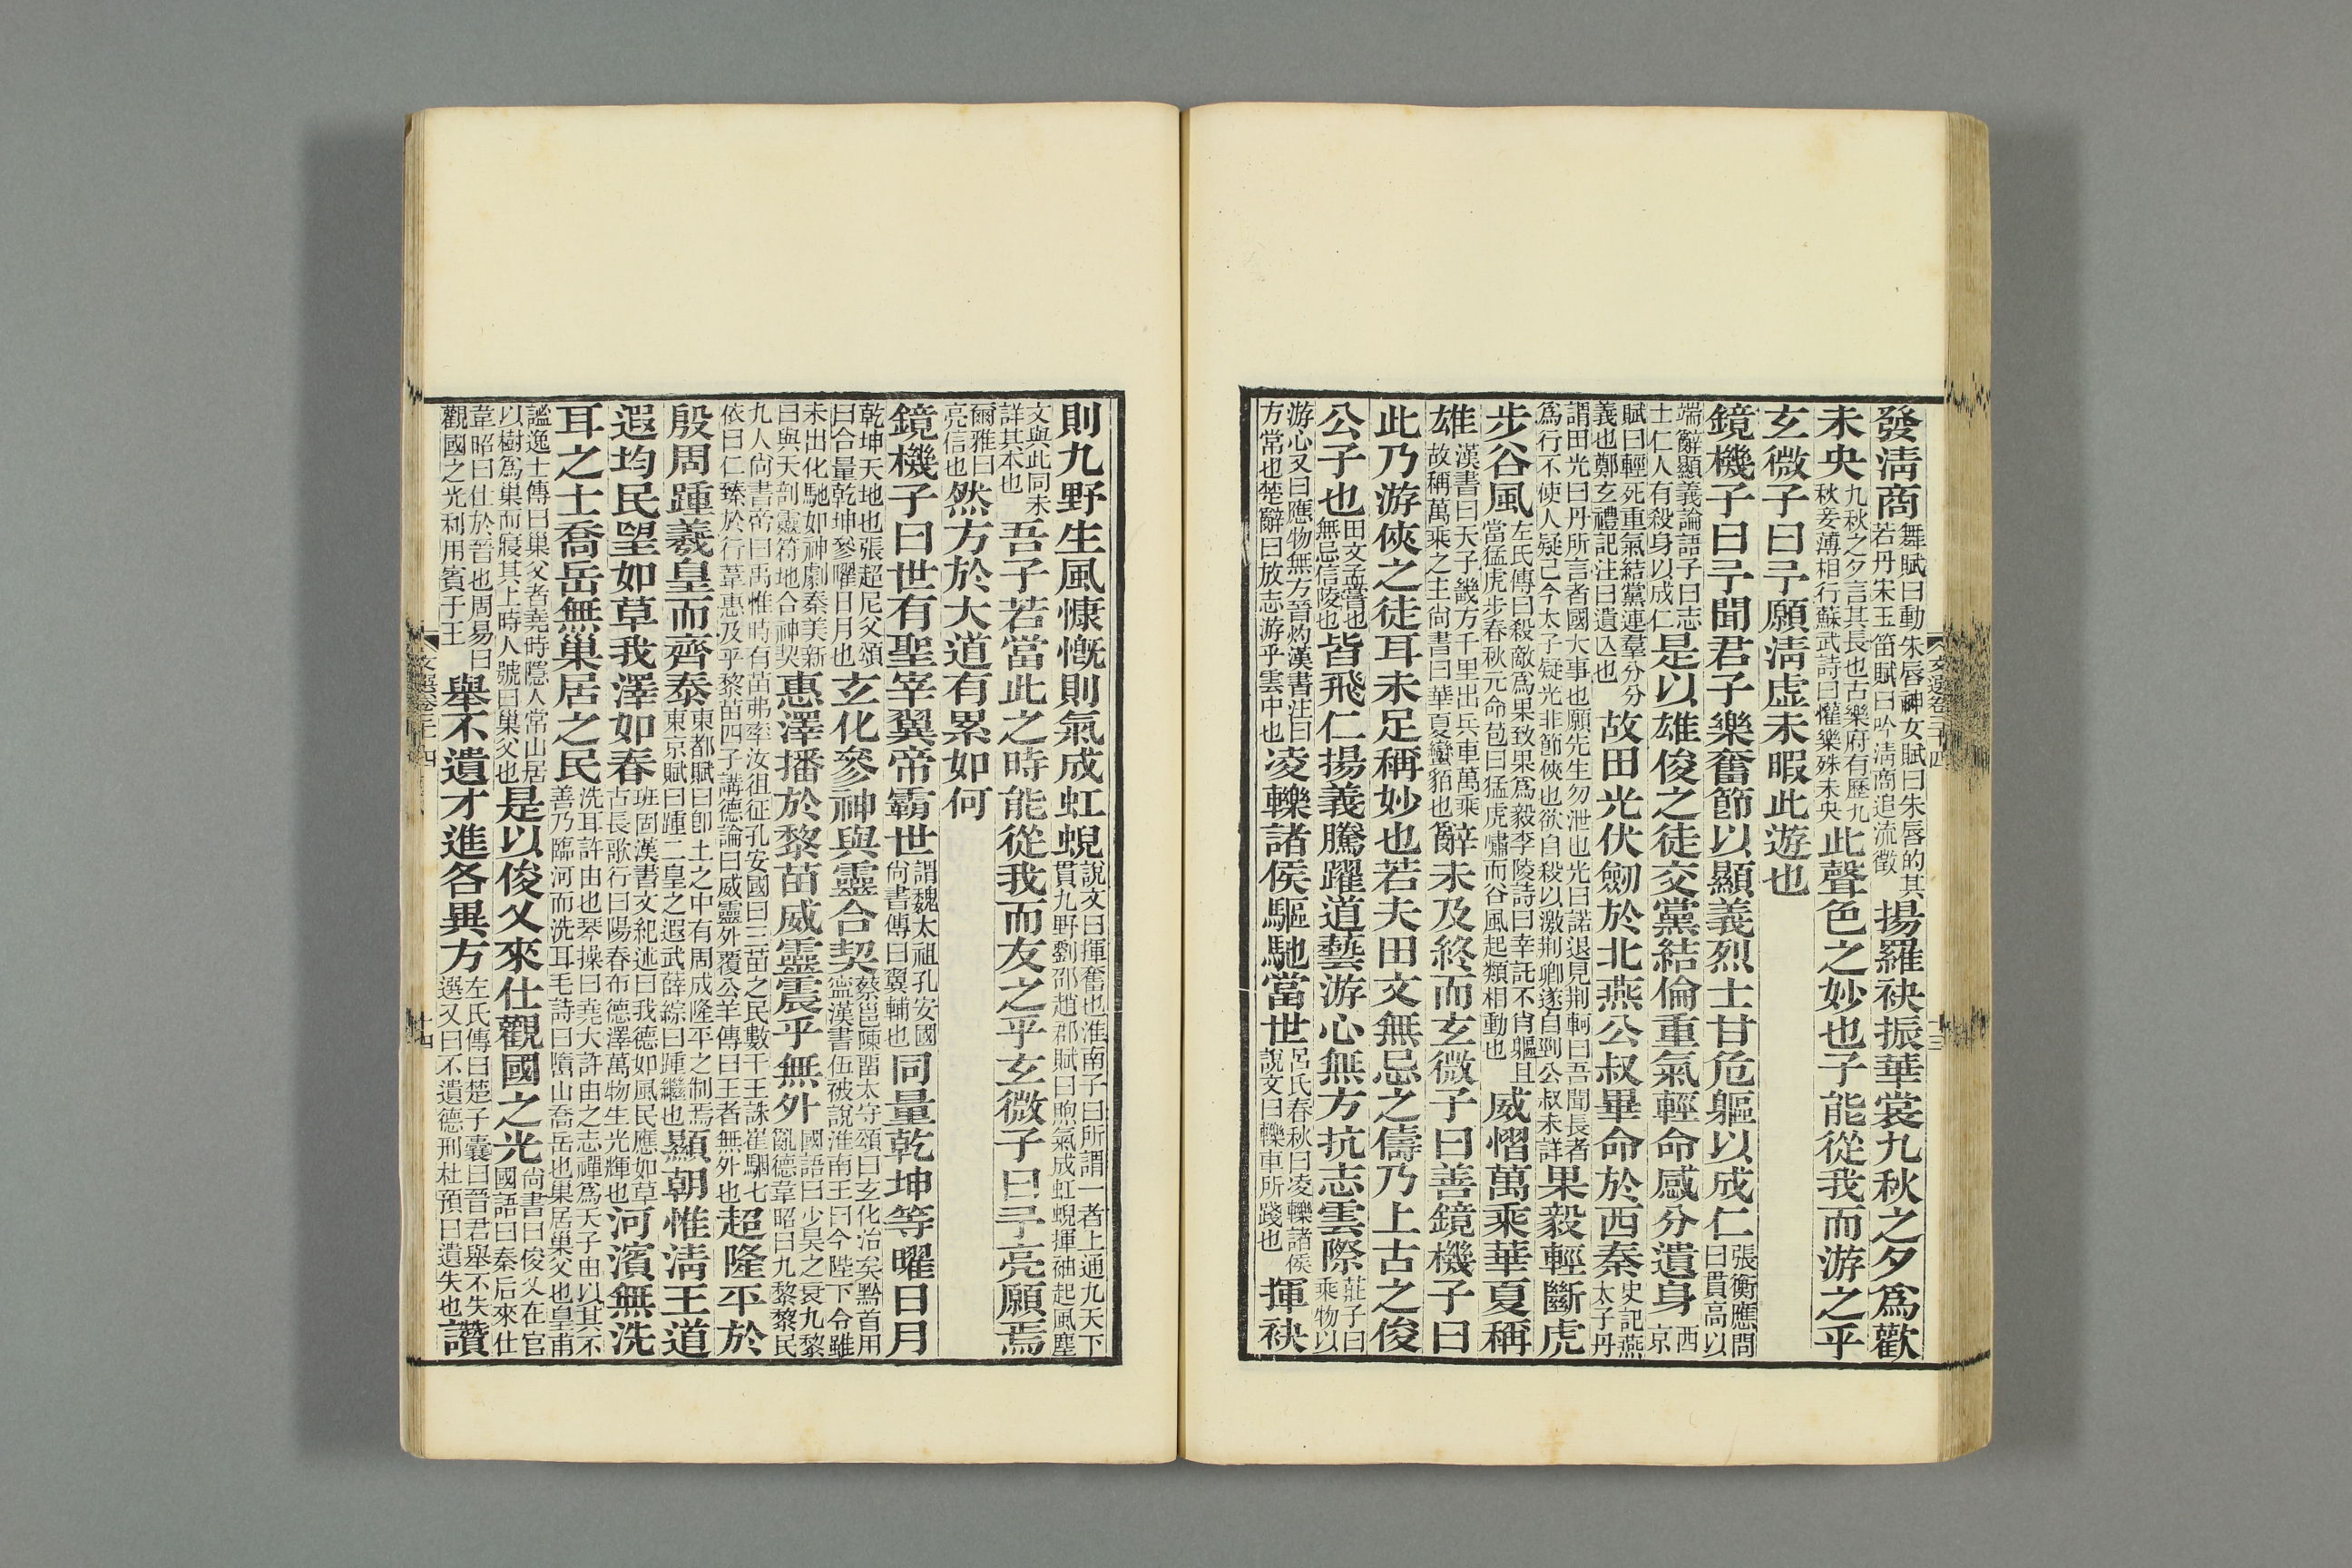 發淸商舞賦曰動朱脣神女賦曰朱脣的其若丹宋玉笛賦曰吟淸商追流徵揚羅袂振華裳九秋之夕爲歡
未央九秋之夕言其長也古樂府有歷九秋妾薄相行蘇武詩曰懽樂殊未央此聲色之妙也子能從我而游之乎
玄微子曰予願淸虛未暇此遊也
鏡機子曰予聞君子樂奮節以顯義烈士甘危軀以成仁張衡應問曰貫高以
端辭顯義論語子曰志士仁人有殺身以成仁是以雄俊之徒交黨結倫重氣輕命感分遺身西京
賦曰輕死重氣結黨連羣分分義也鄭玄禮記注曰遺亾也故田光伏劒於北燕公叔畢命於西秦史記燕太子丹
謂田光曰丹所言者國大事也願先生勿泄也光曰諾退見荆軻曰吾聞長者爲行不使人疑己今太子疑光非節俠也欲自殺以激荆卿遂自剄公叔未詳果毅輕斷虎
步谷風左氏傳曰殺敵爲果致果爲毅李陵詩曰幸託不肖軀且當猛虎步春秋元命苞曰猛虎嘯而谷風起類相動也威慴萬乘華夏稱
雄漢書曰天子畿方千里出兵車萬乘故稱萬乘之主尚書曰華夏蠻貊也辭未及終而玄微子曰善鏡機子曰
此乃游俠之徒耳未足稱妙也若夫田文無忌之儔乃上古之俊
公子也田文孟嘗也無忌信陵也皆飛仁揚義騰躍道藝游心無方抗志雲際莊子曰乘物以
游心又曰應物無方晉灼漢書注曰方常也楚辭曰放志游乎雲中也凌轢諸侯驅馳當世呂氏春秋曰凌轢諸侯說文曰轢車所踐也揮袂
則九野生風慷慨則氣成虹蜺說文曰揮奮也淮南子曰所謂一者上通九天下貫九野劉邵趙郡賦曰煦氣成虹蜺揮袖起風塵
文與此同未詳其本也吾子若當此之時能從我而友之乎玄微子曰予亮願焉
爾雅曰亮信也然方於大道有累如何
鏡機子曰世有聖宰翼帝霸世謂魏太祖孔安國尚書傳曰翼輔也同量乾坤等曜日月
乾坤天地也張超尼父頌曰合量乾坤參曜日月也玄化參神與靈合契蔡邕陳留太守頌曰玄化洽矣黔首用寧漢書伍被說淮南王曰今陛下令雖
未出化馳如神劇秦美新曰與天剖靈符地合神契惠澤播於黎苗威靈震乎無外國語曰少昊之衰九黎亂德韋昭曰九黎黎民
九人尚書帝曰禹惟時有苗弗率汝徂征孔安國曰三苗之民數干王誅崔駰七依曰仁臻於行葦惠及乎黎苗四子講德論曰威靈外覆公羊傳曰王者無外也超隆平於
殷周踵羲皇而齊泰東都賦曰卽土之中有周成隆平之制焉東京賦曰踵二皇之遐武薛綜曰踵繼也顯朝惟淸王道
遐均民望如草我澤如春班固漢書文紀述曰我德如風民應如草古長歌行曰陽春布德澤萬物生光輝也河濱無洗
耳之士喬岳無巢居之民洗耳許由也琴操曰堯大許由之志禪爲天子由以其不善乃臨河而洗耳毛詩曰嶞山喬岳也巢居巢父也皇甫
謐逸士傳曰巢父者堯時隱人常山居以樹爲巢而寢其上時人號曰巢父也是以俊乂來仕觀國之光尚書曰俊乂在官國語曰秦后來仕
韋昭曰仕於晉也周易曰觀國之光利用賓于王舉不遺才進各異方左氏傳曰楚子囊曰晉君舉不失選又曰不遺德刑杜預曰遺失也讚